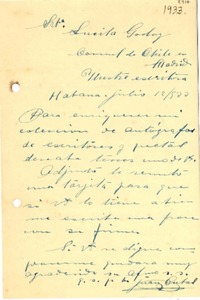 1933.
Srta.
Lucila Godoy
Consul de Chile en
Madrid
Ilustre escritora
Habana - Julio 12/933
Para enriquecer mi
coleccion de autógrafos
de escritores y poetas
deseaba tener uno de Vd.
Adjunto le remito
una tarjeta para que
si Vd. lo tiene a bien
me escriba una frase
con su firma.
Si Vd. se digna com-
placerme quedará muy
agradecido su Afmo. s.s.
q.s.p.b. Juan